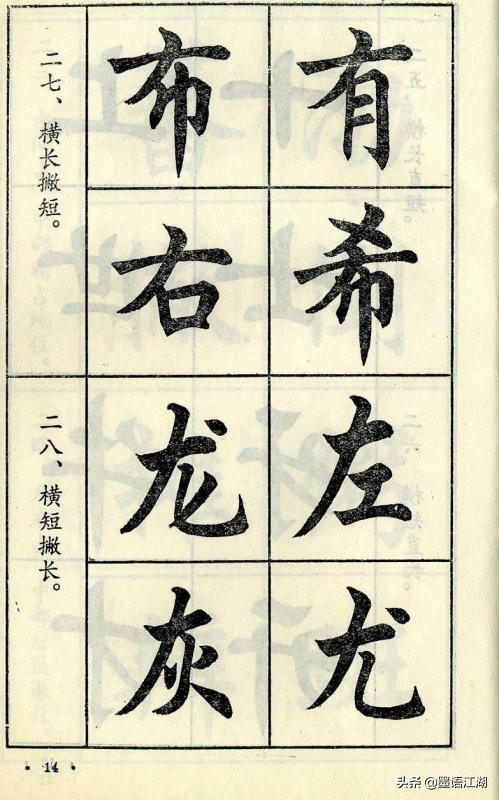 有
希
左
尤
布
右
龙
灰
二七、横长撇短。
二八、横短撇长。
·14·
头条@墨语江湖